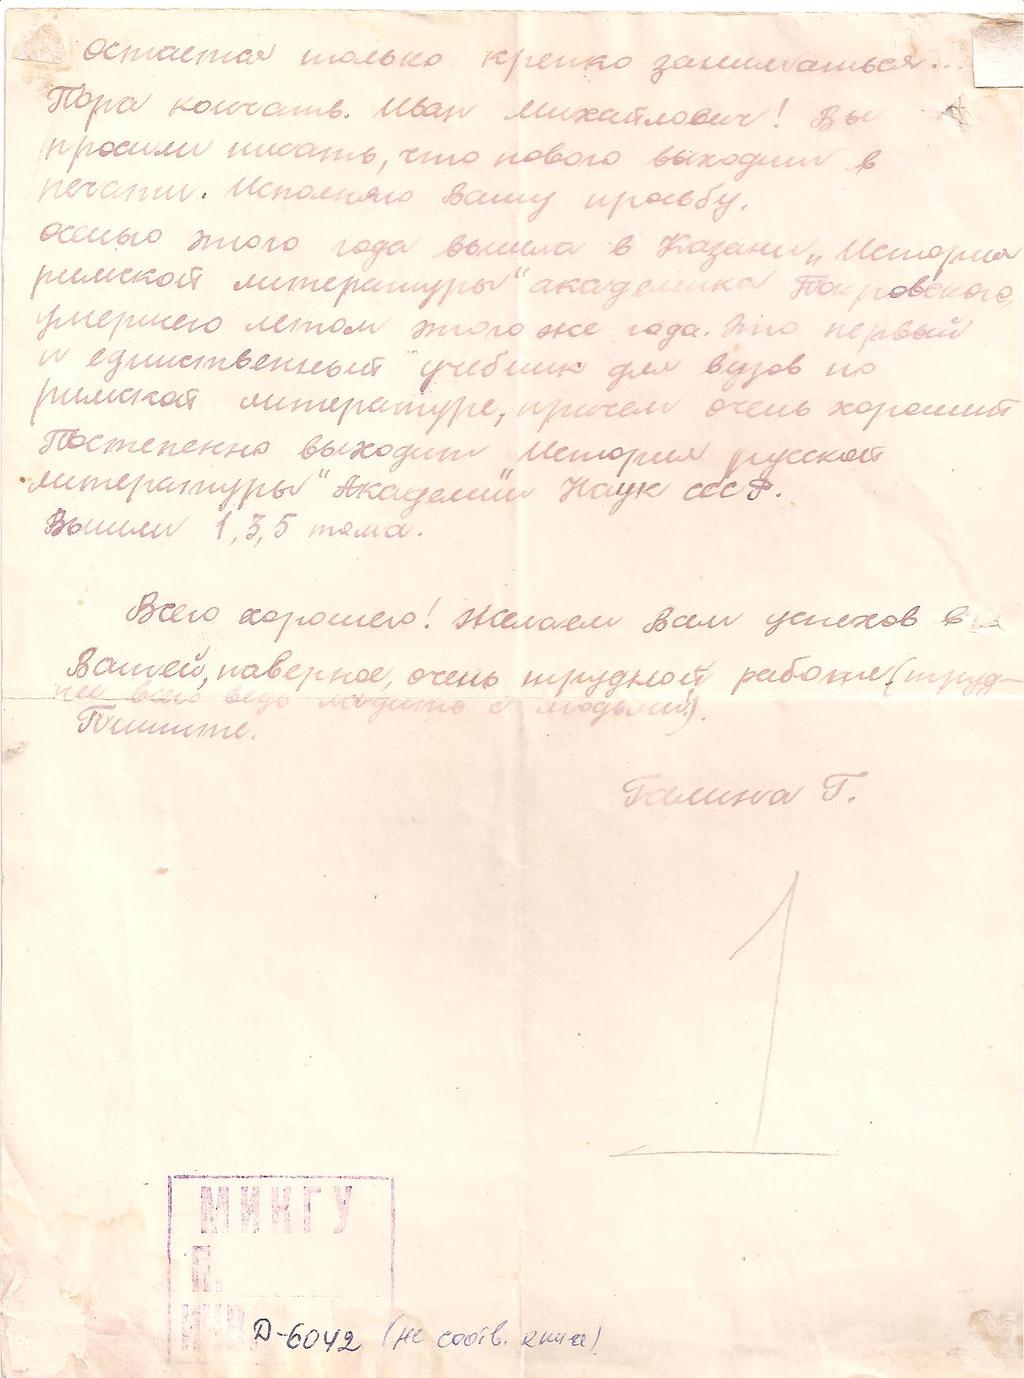 остается только крепко заниматься...
Пора кончать. Иван Михайлович! Вы
просили писать, что нового выходит в
печати. Исполняю Вашу просьбу.
Осенью этого года вышла в Казани „История
римской литературы" академика Покровского,
умершего летом этого же года. Это первый
и единственный учебник для вузов по
римской литературе, причем очень хороший
Постепенно выходит История русской
литературы" Академии Наук СССР.
Вышли 1, 3, 5 тома.
Всего хорошего! Желаем Вам успехов в
Вашей, наверное, очень трудной работе (труд-
нее всего ведь ладить с людьми!).
Пишите.
Галина Г.
1
МИНГУ
П.
ИНВ.
Д-6042 (не соотв. книга)